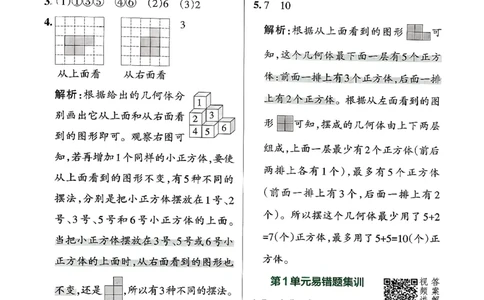 3.(1)①③⑤ ④⑥ (2)6 (3)2
4.
3
从上面看 从右面看
解析:根据给出的几何体分
别画出它从上面和从右面看
到的图形即可。观察右图可
1
2 3
4 5 6
知,若再增加1个同样的小正方体,要使
从上面看到的图形不变,有5种不同的
摆法,分别是把小正方体摆放在1号、2
号、3号、5号和6号小正方体的上面。
当把小正方体摆放在3号、5号或6号小
正方体的上面时,从右面看到的图形也
不变,还是 ,所以有3种不同的摆法。
5.7 10
解析:根据从上面看到的图形 可
知,这个几何体最下面一层有5个正方
体:前面一排上有3个正方体,后面一排
上有2个正方体。根据从左面看到的图
形 可知,摆成的几何体由上下两层
组成,上面一层最少有2个正方体(前后
两排上各有1个),最多有5个正方体
(前面一排上有3个,后面一排上有2
个)。所以摆这个几何体最少用了5+2
=7(个)正方体,最多用了5+5=10(个)正
方体。
第1单元易错题集训